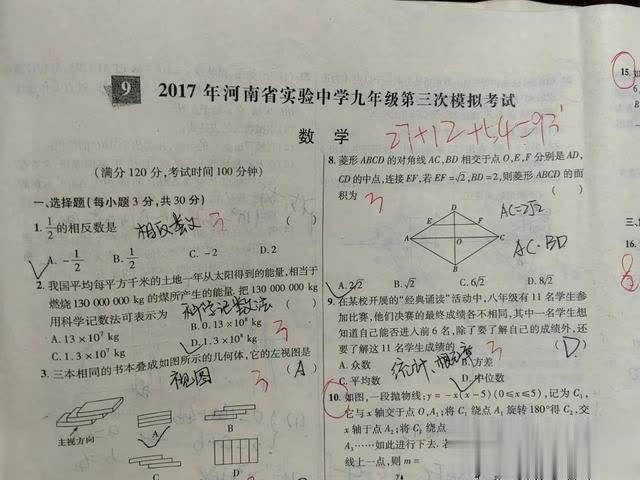 9 2017年河南省实验中学九年级第三次模拟考试
数学
27+12+54=93
(满分120分,考试时间100分钟)
一、选择题(每小题3分,共30分)
1. 1/2的相反数是 相反数 3 ( )
A. -1/2 B. 1/2 C. -2 D. 2
2. 我国平均每平方千米的土地一年从太阳得到的能量,相当于
燃烧130 000 000 kg的煤所产生的能量.把130 000 000 kg
用科学记数法可表示为 科学记数法 ( )
A. 13×10⁷ kg B. 0.13×10⁸ kg
C. 1.3×10⁷ kg D. 1.3×10⁸ kg 3
3. 三本相同的书本叠成如图所示的几何体,它的左视图是
视图 3 (A)
主视方向
A B
C D
8. 菱形ABCD的对角线AC,BD相交于点O,E,F分别是AD,
CD的中点,连接EF,若EF=√2,BD=2,则菱形ABCD的面
积为 3 ( )
D
E F
A O C
B
AC=2√2
AC·BD
A. 2√2 B. √2 C. 6√2 D. 8√2
9. 在某校开展的“经典诵读”活动中,八年级有11名学生参
加比赛,他们决赛的最终成绩各不相同,其中一名学生想
知道自己能否进入前6名,除了要了解自己的成绩外,还
要了解这11名学生成绩的 3 (D)
A. 众数 B. 方差
统计、概率
C. 平均数 D. 中位数
10. 如图,一段抛物线:y=-x(x-5)(0≤x≤5),记为C₁,
它与x轴交于点O,A₁;将C₁绕点A₁旋转180°得C₂,交
x轴于点A₂;将C₂绕点
A₃……如此进行下去.
线上一点,则m=
15. 如
6
16.